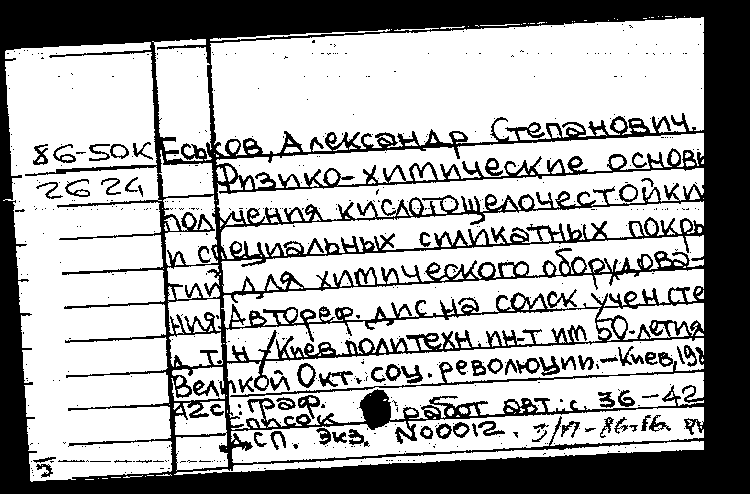 86-50К Еськов, Александр Степанович.
2624 Физико-химические основы
получения кислотощелочестойких
и специальных силикатных покры
тий для химического оборудова-
ния: Автореф. дис. на соиск. учен. сте
д. т. н. /Киев. политехн. ин-т им 50-летия
Великой Окт. соц. революции. - Киев, 198
42 с.: граф.
список работ авт.: с. 36-42
ДСП. Экз. №00012.